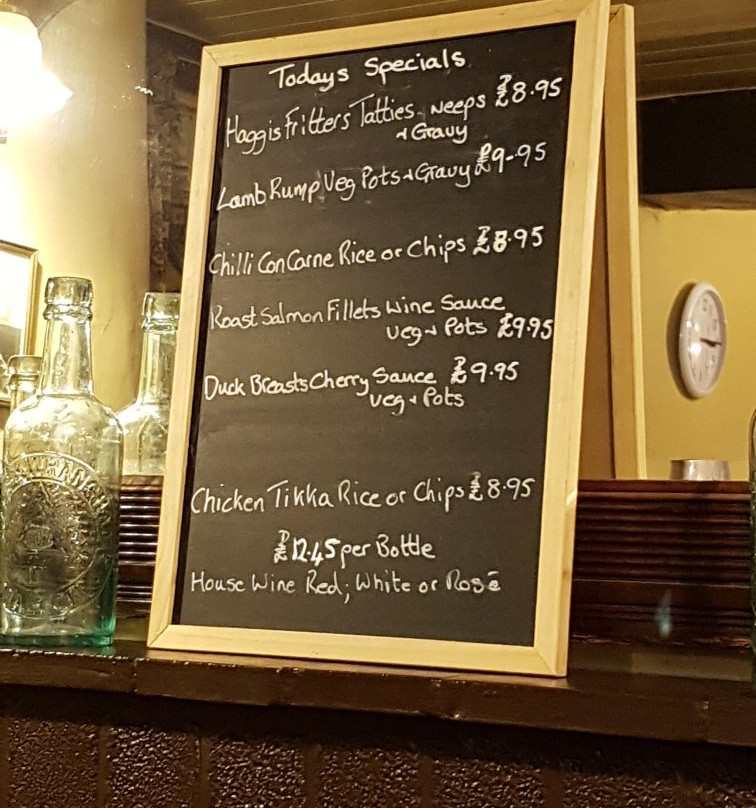 Todays Specials
Haggis Fritters Tatties, Neeps £8.95
+ Gravy
Lamb Rump Veg Pots + Gravy £9-.95
Chilli Con Carne Rice or Chips £8.95
Roast Salmon Fillets Wine Sauce
Veg + Pots £9.95
Duck Breasts Cherry Sauce £9.95
Veg + Pots
Chicken Tikka Rice or Chips £8.95
£12.45 per Bottle
House Wine Red; White or Rosē